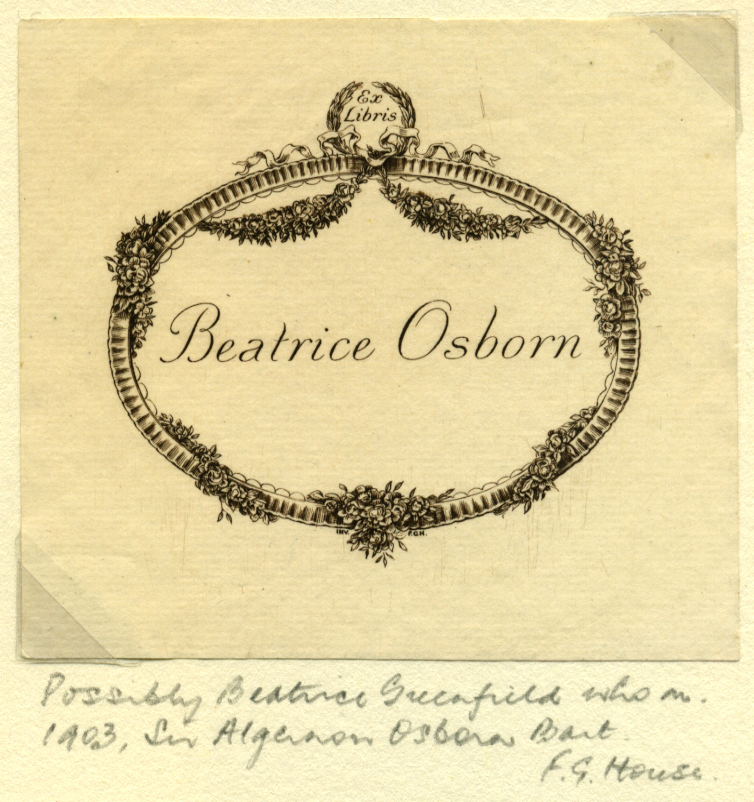 Ex
Libris
Beatrice Osborn
INV. F.G.H.
Possibly Beatrice Greenfield who m.
1903, Sir Algernon Osborn Bart.
F.G. House.